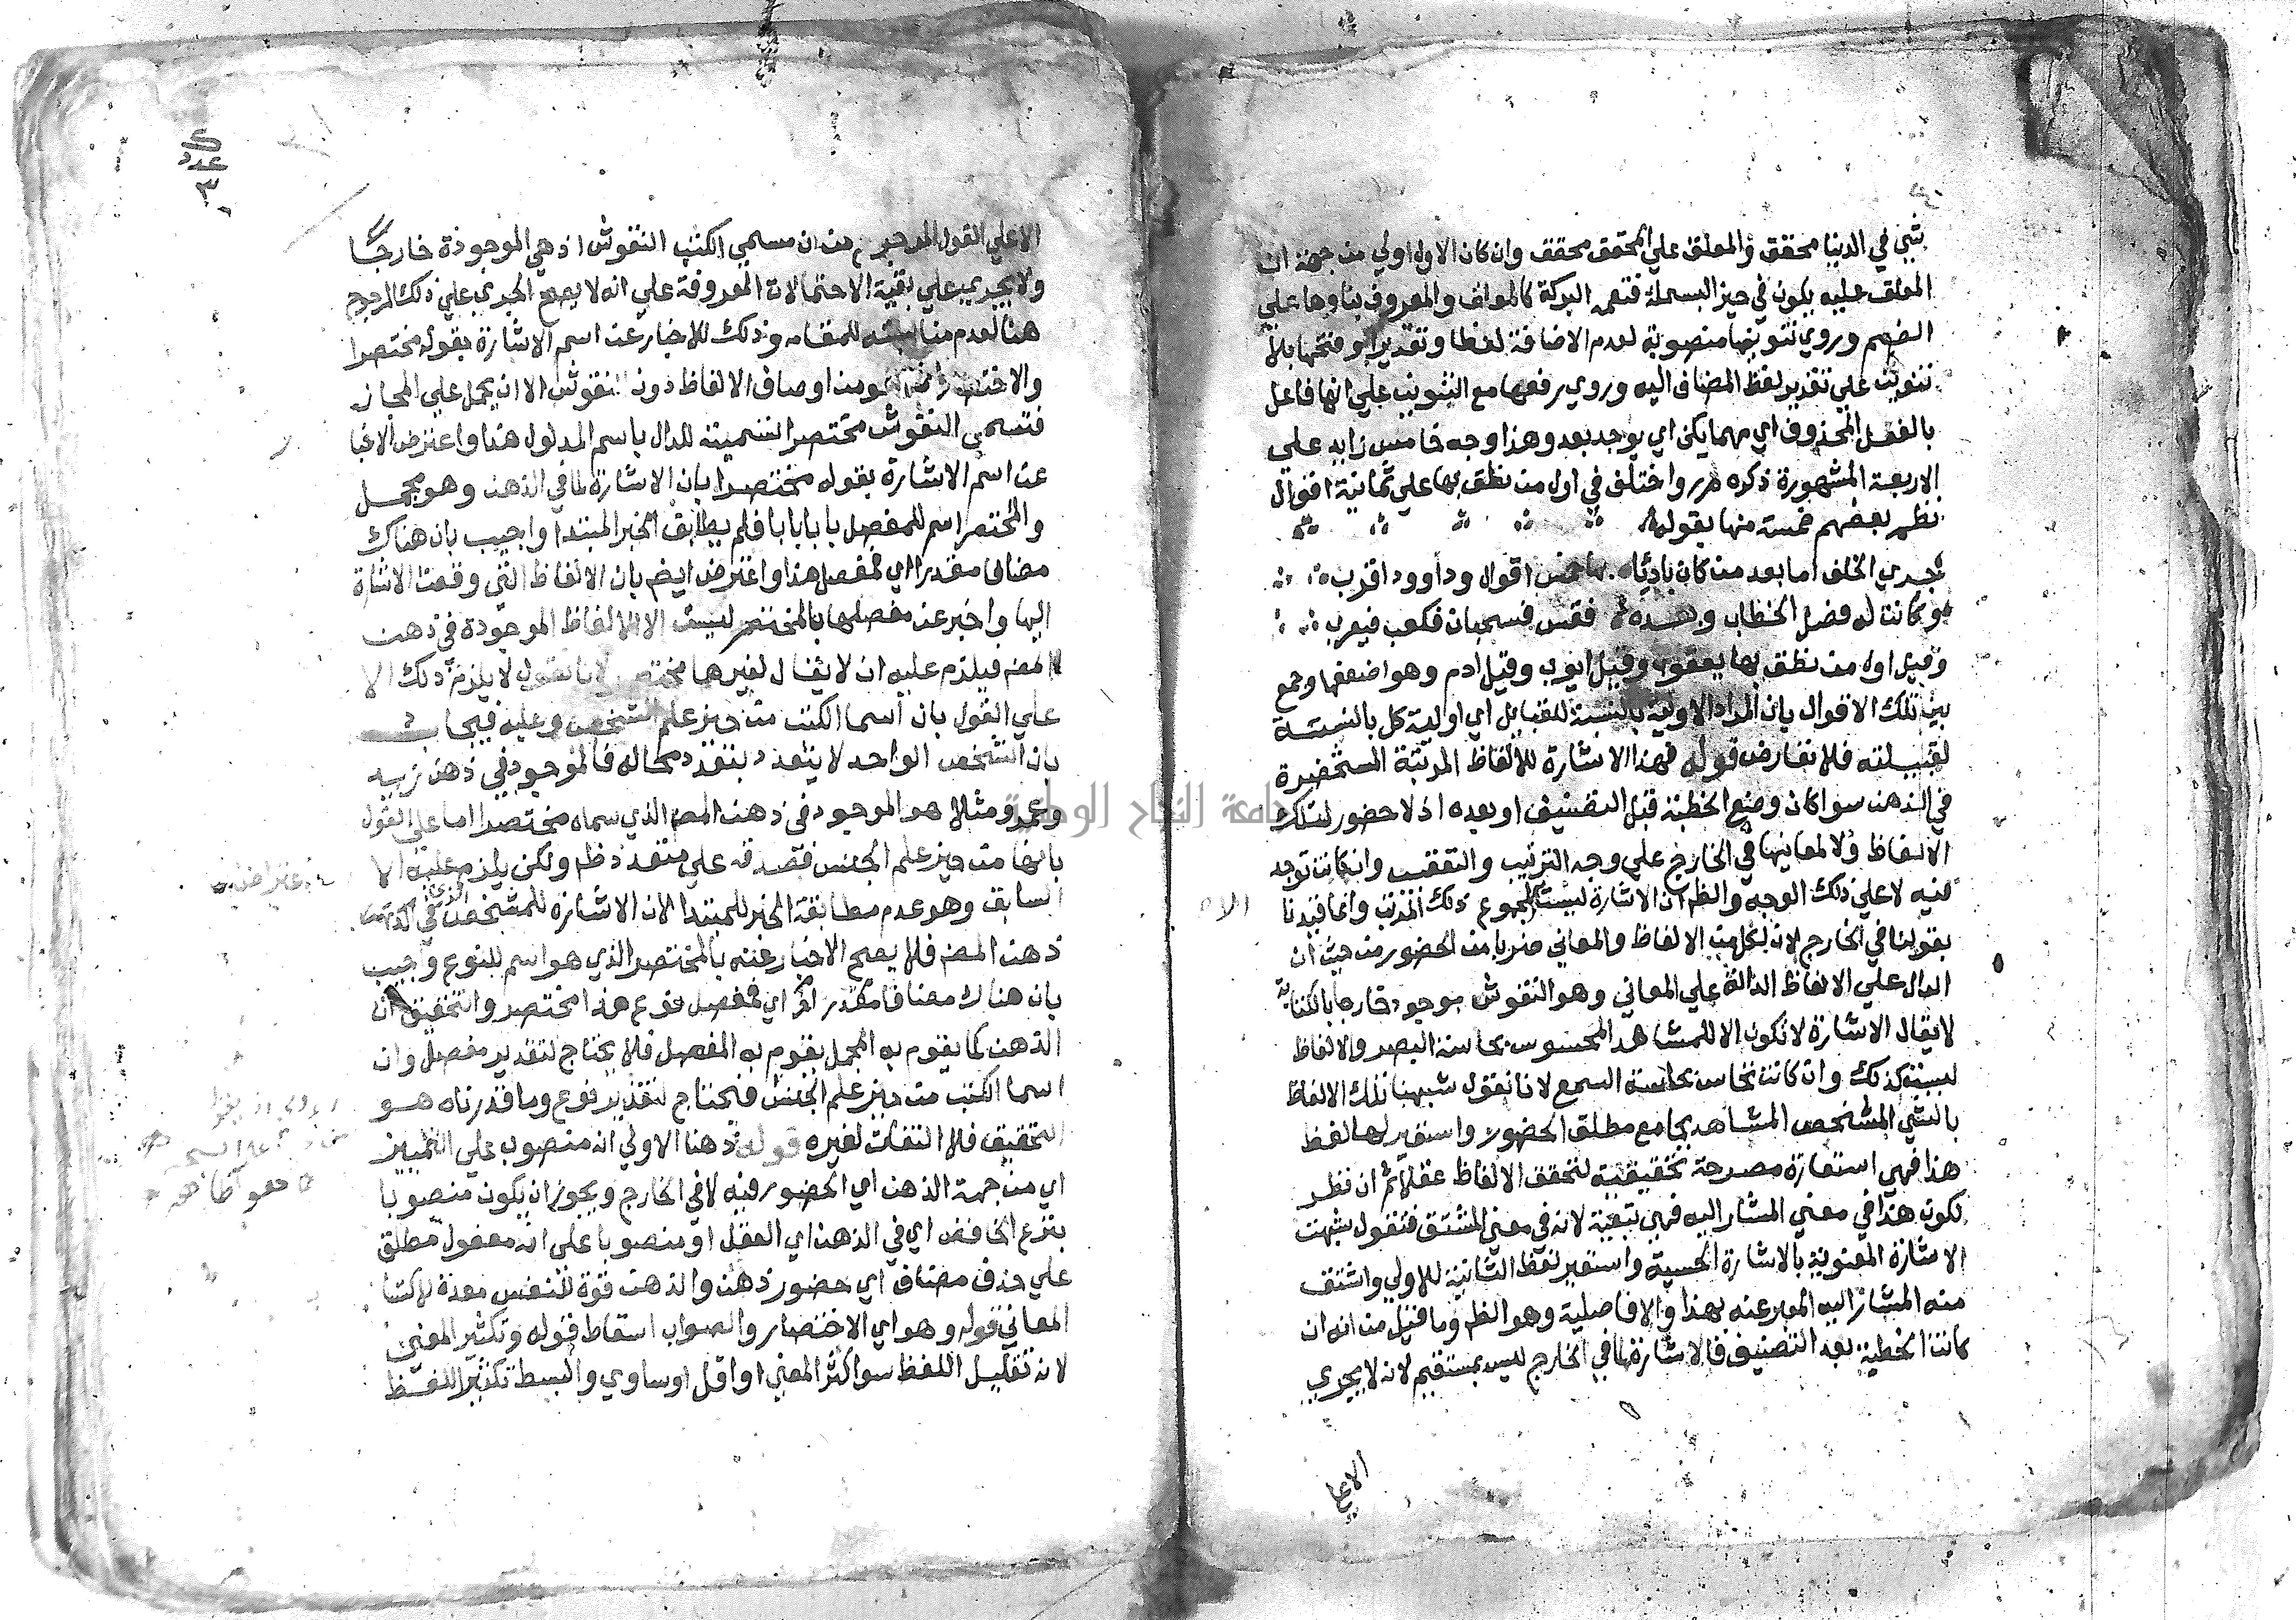 شي في الدنيا محقق والمعلق علي المحقق محقق وان كان الاول اولي من جهة ان
المعلق عليه يكون في حيز البسملة فتعمه البركة كالمولف والمعروف بناوها علي
الضم وروي تنوينها منصوبة لعدم الاضافة لفظا وتقديرا وفتحها بلا
تنوين علي تقدير لفظ المضاف اليه وروي رفعها مع التنوين علي انها فاعل
بالفعل المحذوف اي مهما يكن اي يوجد بعد وهذا وجه خامس زايد علي
الاربعة المشهورة ذكره واختلف في اول من نطق بها علي ثمانية اقوال
نظم بعضهم خمسة منها بقوله
جري الخلف اما بعد من كان باديا بها خمس اقوال وداوود اقرب
وكانت له فصل الخطاب وبعده فقس فسحبان فكعب فيعرب
وقيل اول من نطق بها يعقوب وقيل ايوب وقيل ادم وهو اضعفها وجمع
بين تلك الاقوال بان المراد الاولية بالنسبة للقبايل اي اولية كل بالنسبة
لقبيلته فلا تعارض قوله فهذا الاشارة للالفاظ المرتبة المستحضرة
في الذهن سوا كان وضع الخطبة قبل التصنيف او بعده اذ لا حضور لتلك
الالفاظ ولا لمعانيها في الخارج علي وجه الترتيب والتعقب وان كانت توجد
فيه لا علي ذلك الوجه والظم ان الاشارة ليست لمجموع ذلك المرتب وانما قيدنا
بقولنا في الخارج لان لكل من الالفاظ والمعاني ضربا من الحضور من حيث ان
الدال علي الالفاظ الدالة علي المعاني وهو النقوش موجود خارجا بالكتابة
لا يقال الاشارة لا تكون الا للمشاهد المحسوس بحاسة البصر والالفاظ
ليست كذلك وان كانت تحاس بحاسة السمع لانا نقول شبهنا تلك الالفاظ
بالشي المشخص المشاهد بجامع مطلق الحضور واستعير لها لفظ
هذا فهي استعارة مصرحة تحقيقية لتحقق الالفاظ عقلا ثم ان نظر
لكون هذا في معني المشار اليه فهي تبعية لانه في معني المشتق فنقول شبهت
الاشارة المعنوية بالاشارة الحسية واستعير لفظ الثانية للاولي واشتق
منه المشار اليه المعبر عنه بهذا والا فاصلية وهو الظم وما قيل من انه ان
كانت الخطبة بعد التصنيف فالاشارة لما في الخارج ليس بمستقيم لانه لا يجري
الا علي
عدد
٣
الا علي القول المرجوح من ان مسمي الكتب النقوش اذ هي الموجودة خارجا
ولا يجري علي بقية الاحتمالات المعروفة علي انه لا يصح الجري علي ذلك المرجوح
هنا لعدم مناسبته للمقام وذلك للاخبار عن اسم الاشارة بقوله مختصرا
والاختصار انما هو من اوصاف الالفاظ دون النقوش الا ان يحمل علي المجاز
فتسمي النقوش مختصرا تسمية للدال باسم المدلول هذا واعترض الاخبا
عن اسم الاشارة بقوله مختصرا بان الاشارة لما في الذهن وهو مجمل
والمختصر اسم للمفصل بابا بابا فلم يطابق الخبر المبتدا واجيب بان هناك
مضافا مقدرا اي مفصل هذا واعترض ايضم بان الالفاظ التي وقعت الاشارة
اليها واخبر عن مفصلها بالمختصر ليست الا الالفاظ الموجودة في ذهن
المص فيلزم عليه ان لا يقال لغيرها مختصر لانا نقول لا يلزم ذلك الا
علي القول بان اسما الكتب من حيز علم الشخص وعليه فيجاب
بان الشخص الواحد لا يتعدد بتعدد محاله فالموجود في ذهن زيد
وعمرو مثلا هو الموجود في ذهن المص الذي سماه مختصرا اما علي القول
بانها من حيز علم الجنس فصدقه علي متعدد ظم ولكن يلزم عليه الا
السابق وهو عدم مطابقة الخبر للمبتدا لان الاشارة للمشخص الذي في
ذهن المص فلا يصح الاخبار عنه بالمختصر الذي هو اسم للنوع واجيب
بان هناك مضافا مقدرا اي مفصل نوع هذا مختصر والتحقيق ان
الذهن كما يقوم به المجمل يقوم به المفصل فلا يحتاج لتقدير مفصل وان
اسما الكتب من حيز علم الجنس فنحتاج لتقدير نوع وما قدرناه هو
التحقيق فلا التفات لغيره قوله ذهنا الاولي انه منصوب علي التمييز
اي من جهة الذهن اي الحضور فيه لا في الخارج ويجوز ان يكون منصوبا
بنزع الخافض اي في الذهن اي العقل او منصوبا علي انه مفعول مطلق
علي حذف مضاف اي حضور ذهن والذهن قوة للنفس معدة لاكتسا
المعاني قوله وهو اي الاختصار والصواب اسقاط قوله وتكثير المعني
لانه تقليل اللفظ سوا كثر المعني او اقل او ساوي والبسط تكثير اللفظ
جامعة النجاح الوطنية